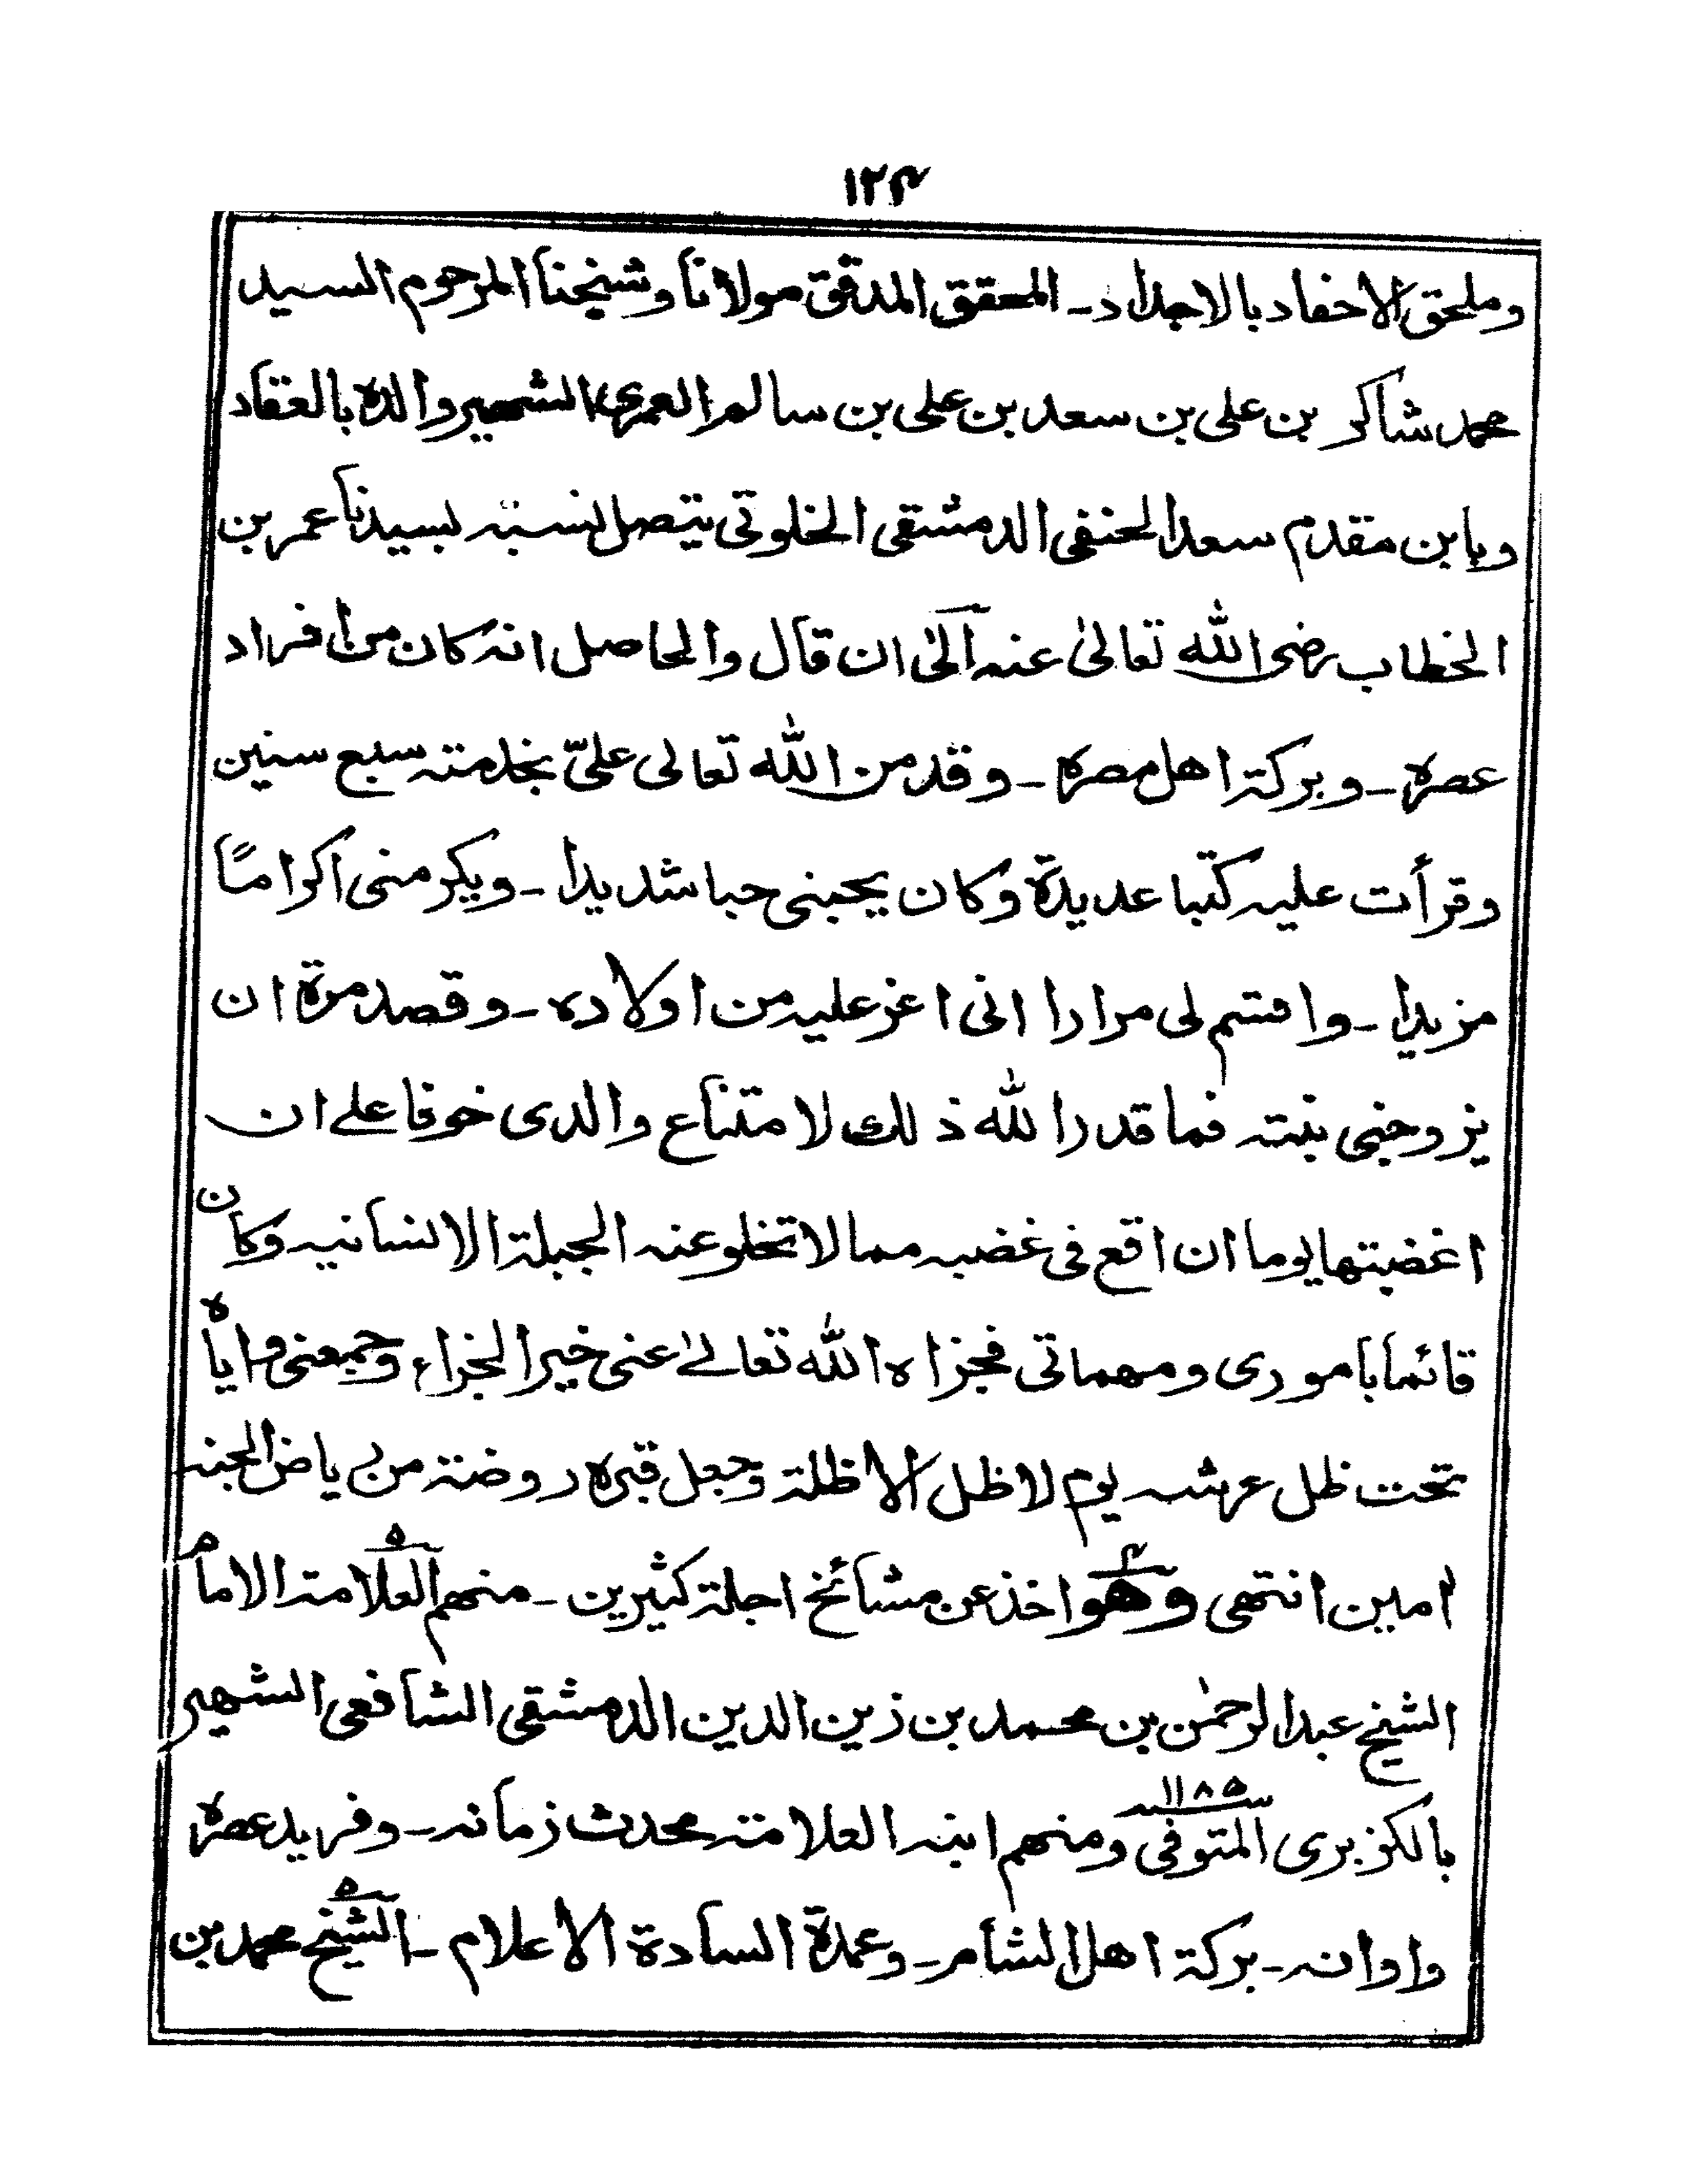 ۱۲۴
وملحق الاحفاد بالاجداد ـ المحقق المدقق مولانا وشيخنا المرحوم السيد
محمد شاكر بن على بن سعد بن على بن سالم العمرى الشهير والده بالعقاد
وبابن مقدم سعد الحنفى الدمشقى الخلوتى يتصل نسبته بسيدنا عمر بن
الخطاب رضى الله تعالىٰ عنه آلىٰ ان قال والحاصل انه كان من افراد
عصره ـ وبركة اهل مصره ـ وقد من الله تعالى علىّ بخدمته سبع سنين
وقرأت عليه كتبا عديدة وكان يحبنى حبا شديدا ـ ويكرمنى اكراماً
مزيدا ـ واقسم لى مرارا انى اعز عليه من اولاده ـ وقصد مرة ان
يزوجنى بنته فما قدر الله ذلك لامتناع والدى خوفا على ان
اغضبتها يوما ان اقع فى غضبه مما لا تخلو عنه الجبلة الانسانيه وكان
قائما بامورى ومهماتى فجزاه الله تعالىٰ عنى خير الجزاء وجمعنى واياه
تحت ظل عرشه يوم لا ظل الا ظلة وجعل قبره روضة من رياض الجنه
امين انتهى وهو اخذ عن مشائخ اجلة كثيرين ـ منهم العلامة الامام
الشيخ عبد الرحمٰن بن محمد بن زين الدين الدمشقى الشافعى الشهير
بالكزبرى المتوفى سنه ۱۱۸۵ ومنهم ابنه العلامة محدث زمانه ـ وفريد عصره
واوانه ـ بركة اهل الشأم ـ وعمدة السادة الاعلام ـ الشيخ محمد بن